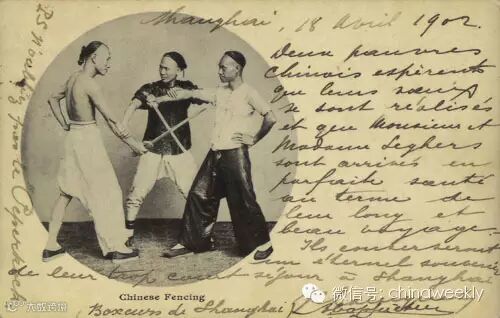 Shanghai, 18 Avril 1902.
Deux pauvres
Chinois espèrent
que leurs
se sont réalisés
et que Monsieur et
Madame Leghers
sont arrivés en
parfaite santé
au terme de
leur long et
beau voyage.
Ils conserveront
de leur trop court séjour à Shanghai
un éternel souvenir
Chinese Fencing
Boxeurs de Shanghai
PS N'oubliez
大数跨境
微信号: chinaweekly